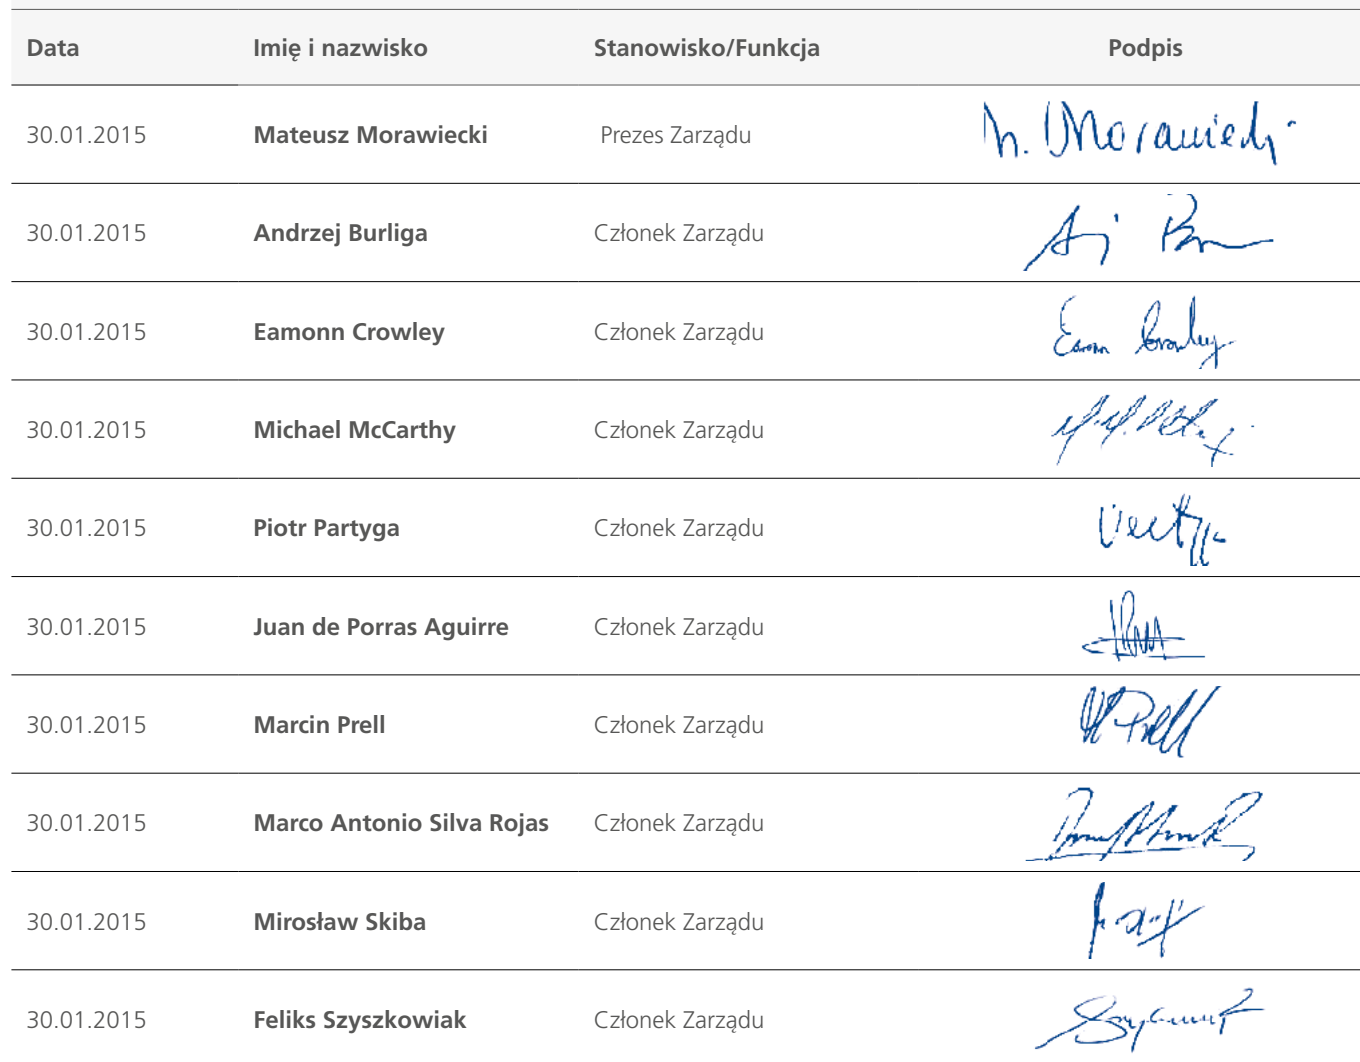 Data Imię i nazwisko Stanowisko/Funkcja Podpis
30.01.2015 Mateusz Morawiecki Prezes Zarządu M. Morawiecki
30.01.2015 Andrzej Burliga Członek Zarządu
30.01.2015 Eamonn Crowley Członek Zarządu Eamonn Crowley
30.01.2015 Michael McCarthy Członek Zarządu
30.01.2015 Piotr Partyga Członek Zarządu
30.01.2015 Juan de Porras Aguirre Członek Zarządu
30.01.2015 Marcin Prell Członek Zarządu M Prell
30.01.2015 Marco Antonio Silva Rojas Członek Zarządu
30.01.2015 Mirosław Skiba Członek Zarządu
30.01.2015 Feliks Szyszkowiak Członek Zarządu